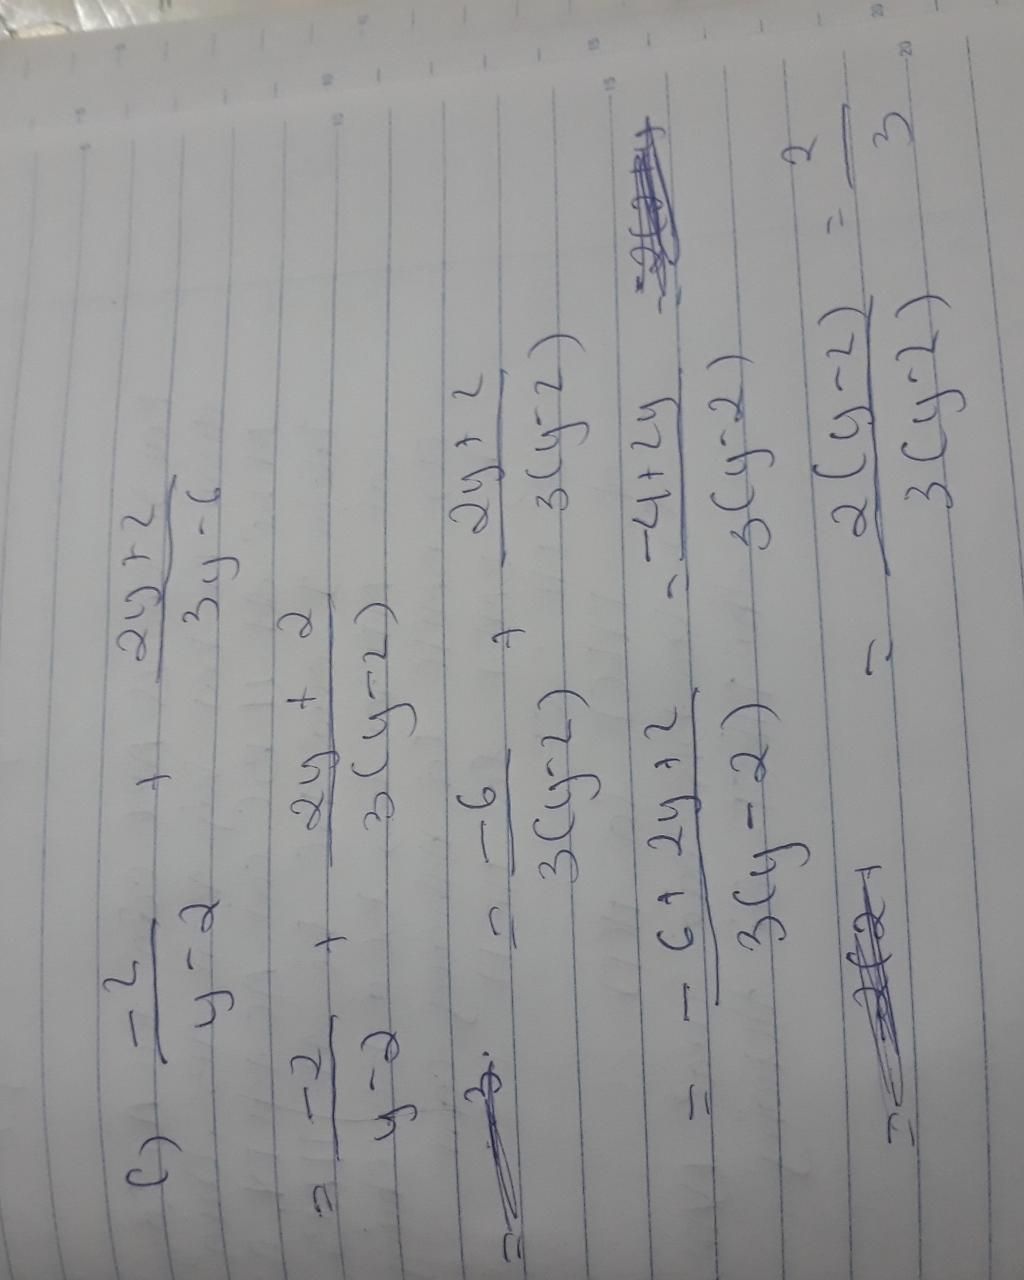 c) -2/(y-2) + (2y+2)/(3y-6)
= -2/(y-2) + (2y+2)/(3(y-2))
= = -6/(3(y-2)) + (2y+2)/(3(y-2))
= (-6+2y+2)/(3(y-2)) = (-4+2y)/(3(y-2))
= = 2(y-2)/(3(y-2)) = 2/3